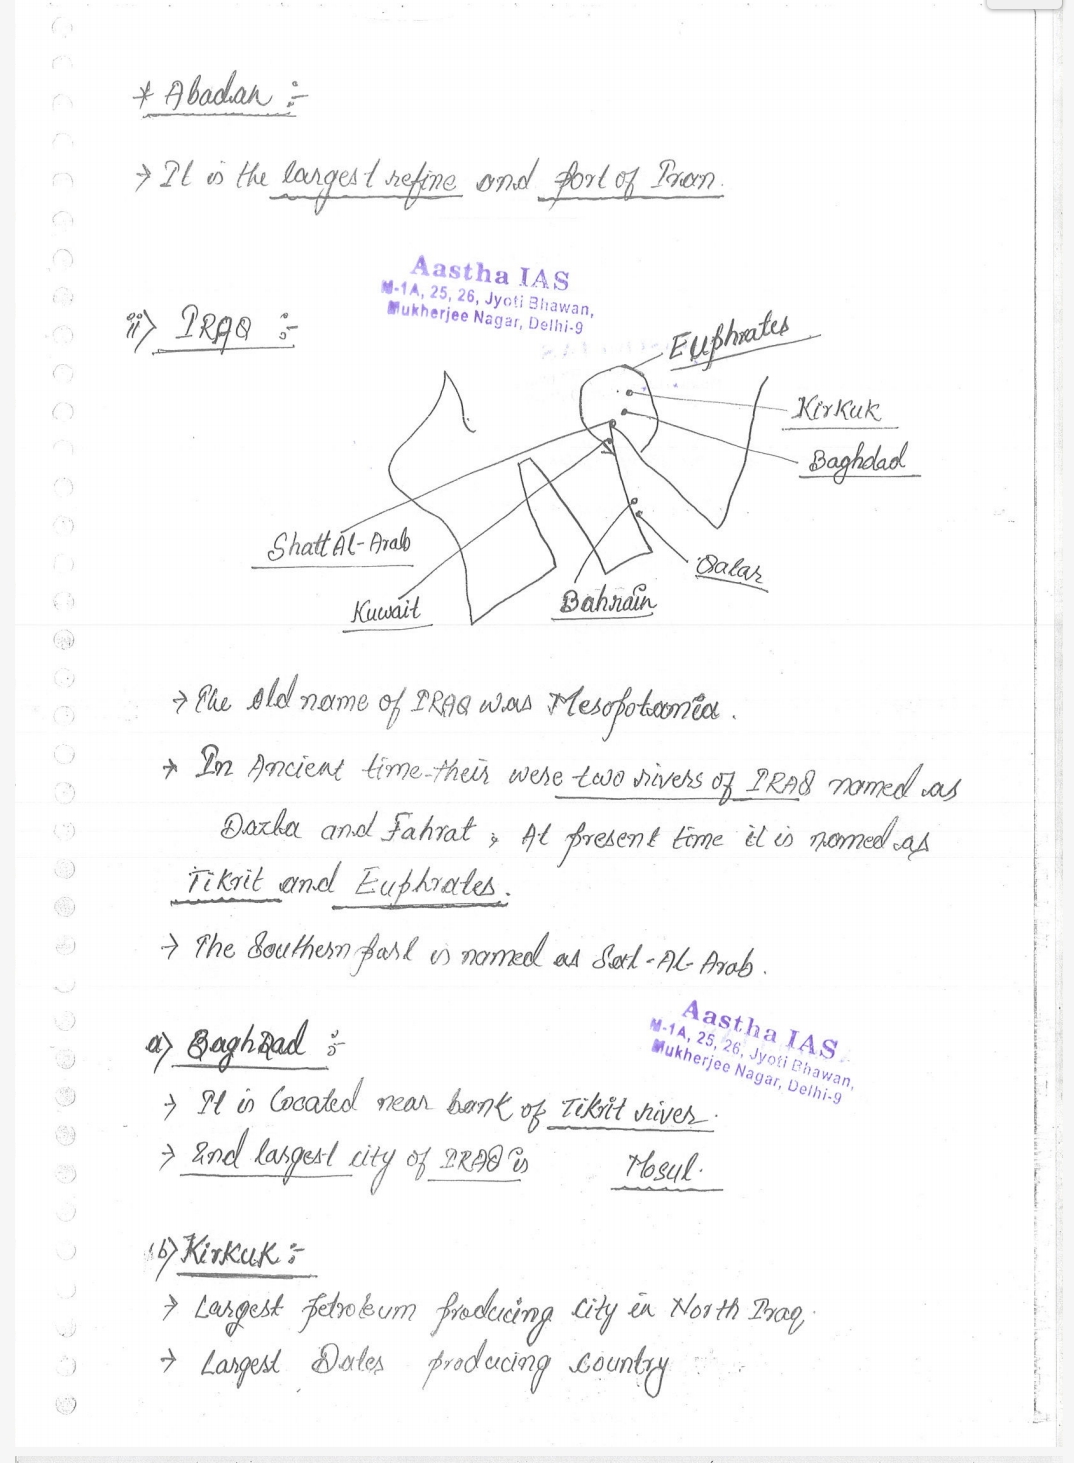 * Abadan :-
→ It is the largest refine and port of Iran.
Aastha IAS
M-1A, 25, 26, Jyoti Bhawan,
Mukherjee Nagar, Delhi-9
ii) IRAQ :-
Euphrates
Kirkuk
Baghdad
Shatt Al-Arab
Qatar
Kuwait
Bahrain
→ The old name of IRAQ was Mesopotamia.
→ In Ancient time their were two rivers of IRAQ named as
and Fahrat, At present time it is named as
Tikrit and Euphrates.
→ The Southern part is named as Sat-Al-Arab.
Aastha IAS
M-1A, 25, 26, Jyoti Bhawan,
Mukherjee Nagar, Delhi-9
a) Baghdad :-
→ It is Located near bank of Tikrit river.
→ 2nd largest city of IRAQ is Mosul.
b) Kirkuk :-
→ Largest petroleum producing city in North Iraq.
→ Largest Dates producing country